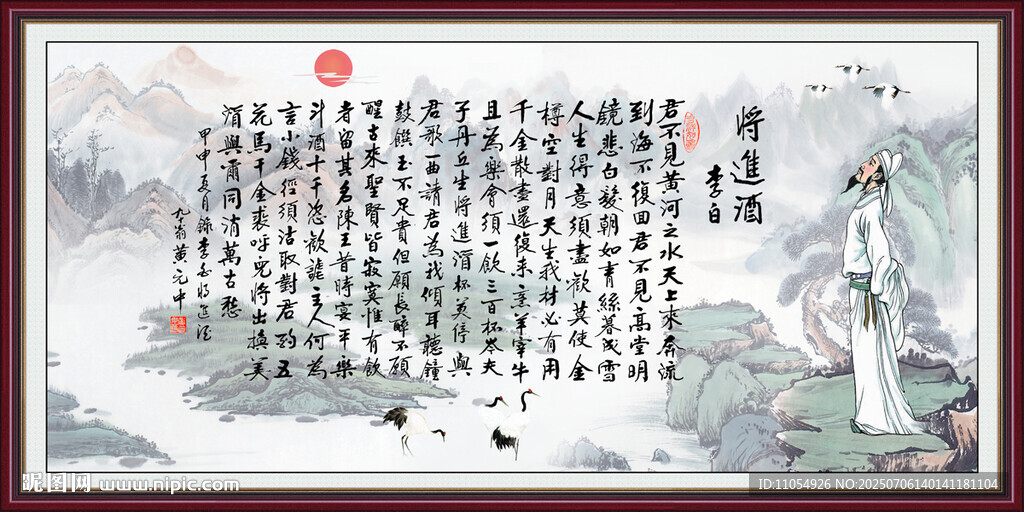 將進酒
李白
君不見黃河之水天上來奔流
到海不復回君不見高堂明
鏡悲白髮朝如青絲暮成雪
人生得意須盡歡莫使金
樽空對月天生我材必有用
千金散盡還復來烹羊宰牛
且為樂會須一飲三百杯岑夫
子丹丘生將進酒杯莫停與
君歌一曲請君為我傾耳聽鐘
鼓饌玉不足貴但願長醉不願
醒古來聖賢皆寂寞惟有飲
者留其名陳王昔時宴平樂
斗酒十千恣歡謔主人何為
言少錢徑須沽取對君酌五
花馬千金裘呼兒將出換美
酒與爾同消萬古愁
甲申夏月錄李白將進酒
翁黃元中
昵图网 www.nipic.com
ID:11054926 NO:20250706140141181104